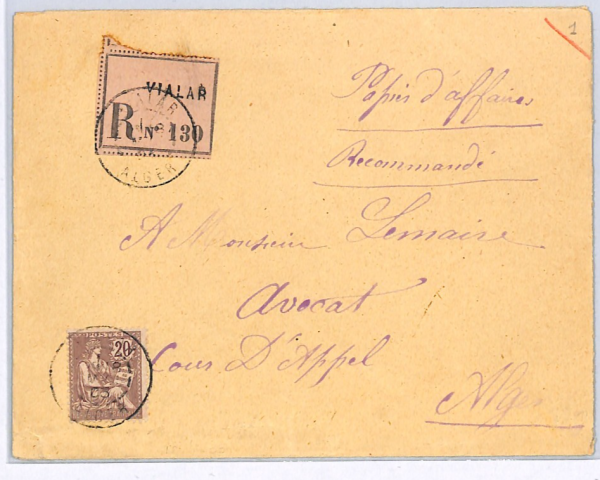 1
VIALAR
R N° 130
ALGER
Papiers d'affaires
Recommandé
A Monsieur Lemaire
Avocat
Cour D'Appel
Alger
POSTES
20